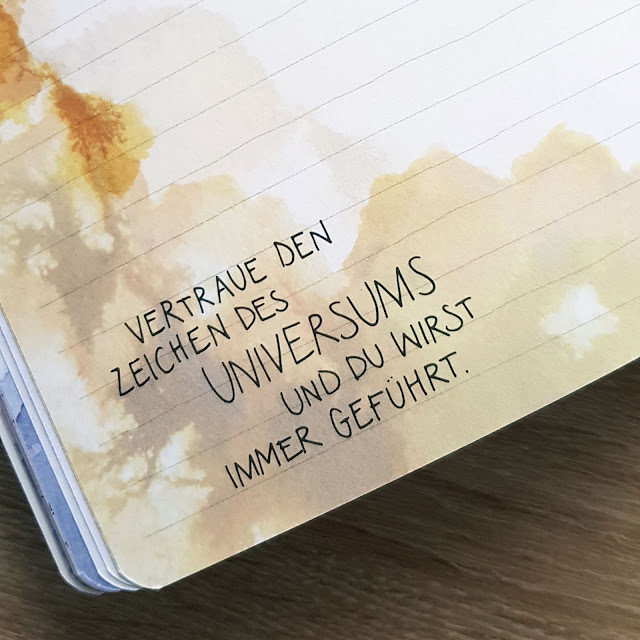 VERTRAUE DEN
ZEICHEN DES
UNIVERSUMS
UND DU WIRST
IMMER GEFÜHRT.